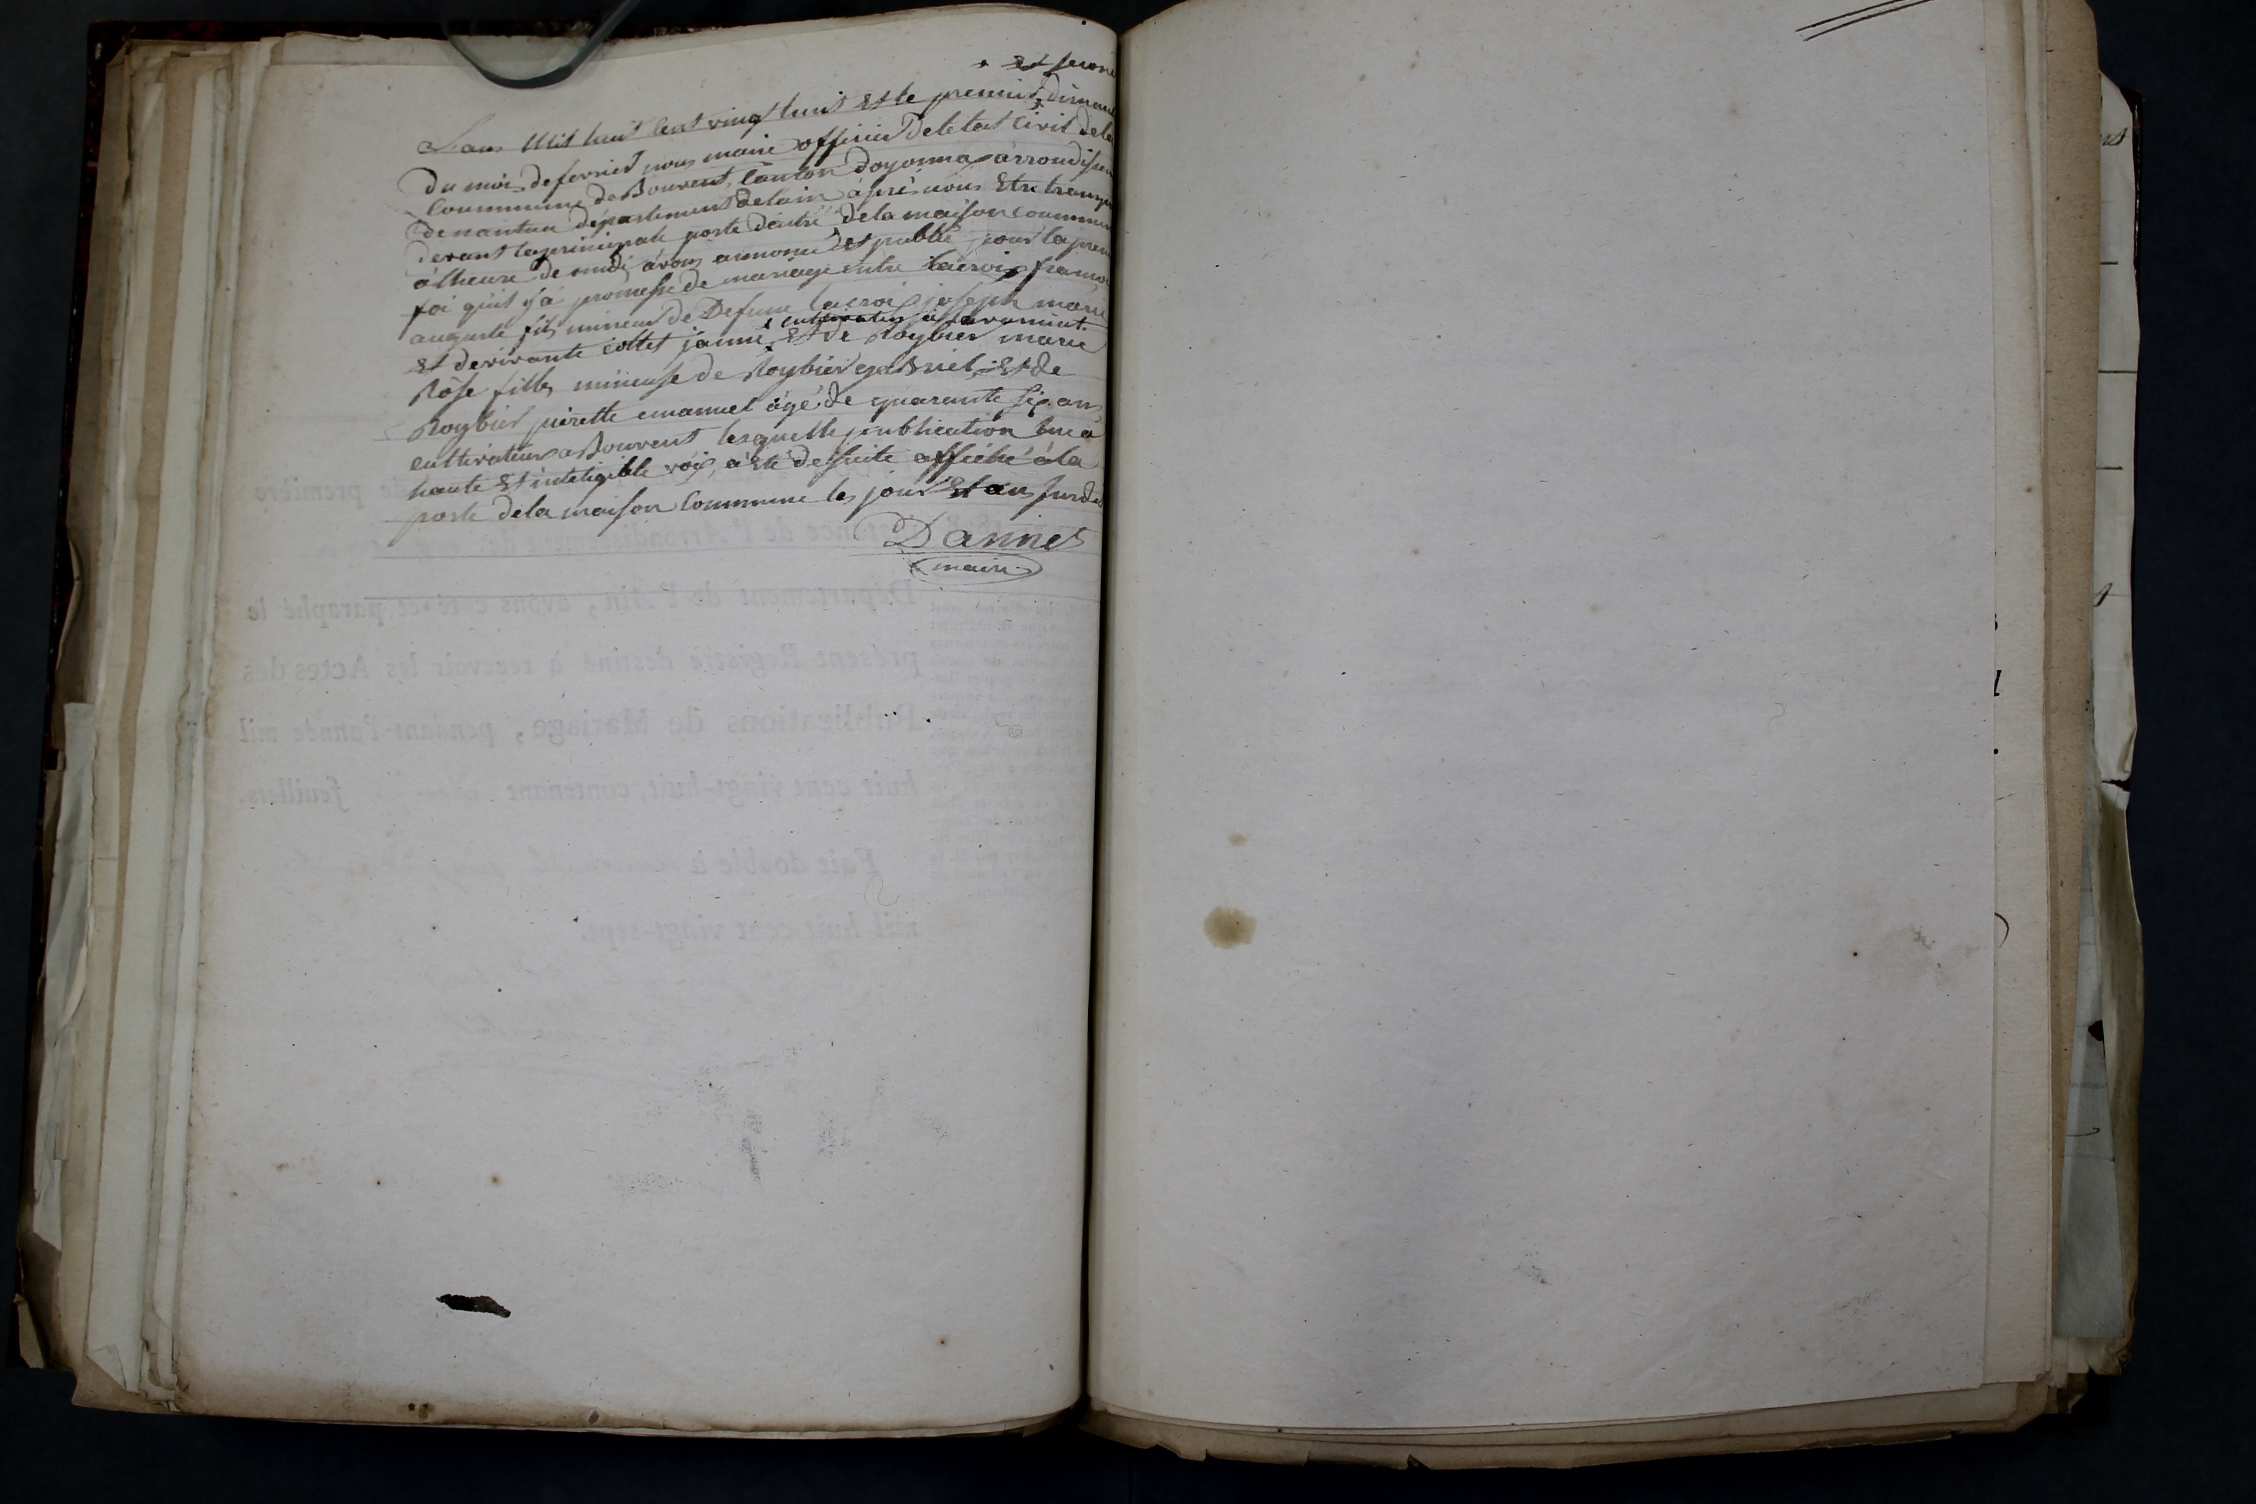 et secon
Lans Mil huit Cent vingt huit Et le premier dimanc
Du mois de fevrier nous maire officier De letat Civil dela
Commune de Bouvent, Canton doyonnax arrondissem
De nantua département delain àprés nous Etre transpor
devant la principale porte dentré dela maison commune
à lheure de midi avons annoncé et publié pour la prem
foi quil y à promesse de mariage entre lacroix françoi
auguste fils mineur de Defunt lacroix joseph marie
cultivateur à
Et de vivante collet jànne Et de Roybier marie
Rôse fille mineuse de Roybier gabriel, Et de
Roybier pierette emanuel àgé de quarante six ans
cultivateur a Bouvent lesquelle publication lue à
haute Et inteligible voix, à Eté de suite affiché àla
porte dela maison Commune les jour Et an susdit
Dannet
maire
premiere
Instance de l'Arrondissement de
Département de l'Ain, avons coté et paraphé le
présent Registre destiné à recevoir les Actes des
Publications de Mariage, pendant l'année mil
huit cent vingt-huit, contenant feuillets.
Fait double à
mil huit cent vingt-sept.